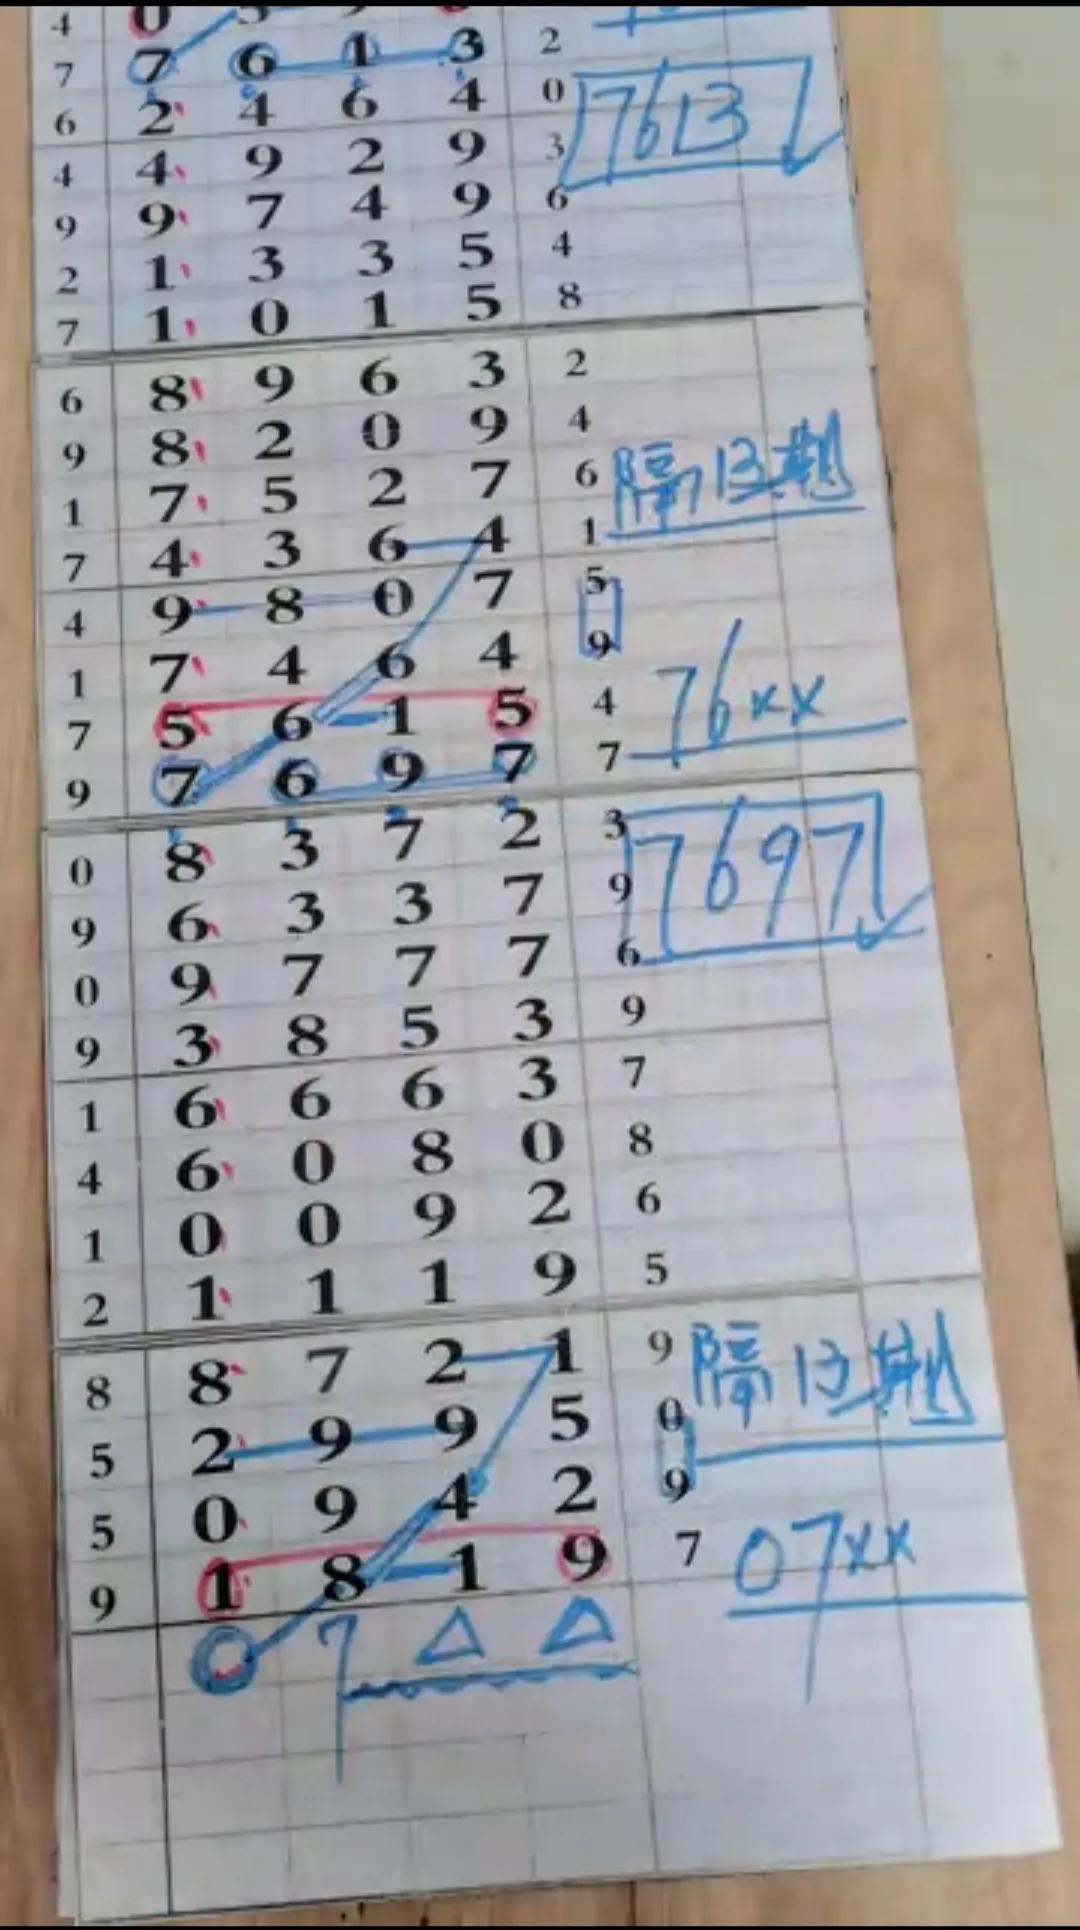 7 7 6 1 3 2
6 2 4 6 4 0 7613
4 4 9 2 9 3
9 9 7 4 9 6
2 1 3 3 5 4
7 1 0 1 5 8
6 8 9 6 3 2
9 8 2 0 9 4
1 7 5 2 7 6 隔13期
7 4 3 6 4 1
4 9 8 0 7 5
1 7 4 6 4 9
7 5 6 1 5 4 76xx
9 7 6 9 7 7
0 8 3 7 2 3
9 6 3 3 7 9 7697
0 9 7 7 7 6
9 3 8 5 3 9
1 6 6 6 3 7
4 6 0 8 0 8
1 0 0 9 2 6
2 1 1 1 9 5
8 8 7 2 1 9 隔13期
5 2 9 9 5 0
5 0 9 4 2 9
9 1 8 1 9 7 07xx
0 7 △ △